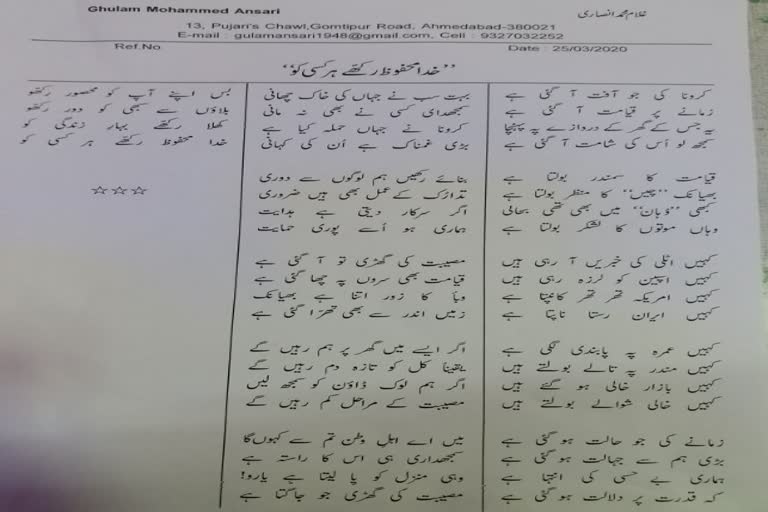 Ghulam Mohammed Ansari
غلام محمد انصاری
13, Pujari's Chawl,Gomtipur Road, Ahmedabad-380021
E-mail : gulamansari1948@gmail.com, Cell : 9327032252
Ref.No.
Date : 25/03/2020
”خدا محفوظ رکھے ہر کسی کو“
کرونا کی جو آفت آ گئی ہے
زمانے پر قیامت آ گئی ہے
یہ جس کے گھر کے دروازے پہ پہنچا
سمجھ لو اُس کی شامت آ گئی ہے
قیامت کا سمندر بولتا ہے
بھیانک ”چیں“ کا منظر بولتا ہے
کبھی ”وُہان“ میں بھی تھی بحالی
وہاں موتوں کا لشکر بولتا ہے
کہیں اٹلی کی خبریں آ رہی ہیں
کہیں اسپین کو لرزہ رہی ہیں
کہیں امریکہ تھر تھر کانپتا ہے
کہیں ایران رستا ناپتا ہے
کہیں عمرہ پہ پابندی لگی ہے
کہیں مندر پہ تالے بولتے ہیں
کہیں بازار خالی ہو گئے ہیں
کہیں خالی شوالے بولتے ہیں
زمانے کی جو حالت ہو گئی ہے
بڑی ہم سے جہالت ہو گئی ہے
ہماری بے حسی کی انتہا ہے
کہ قدرت پر دلالت ہو گئی ہے
بہت سب نے جہاں کی خاک چھانی
سمجھدای کسی نے بھی نہ مانی
کرونا نے جہاں حملہ کیا ہے
بڑی غمناک ہے اُن کی کہانی
بنائے رکھیں ہم لوگوں سے دوری
تدارک کے عمل بھی ہیں ضروری
اگر سرکار دیتی ہے ہدایت
ہماری ہو اُسے پوری حمایت
مصیبت کی گھڑی تو آ گئی ہے
قیامت بھی سروں پہ چھا گئی ہے
وبا کا زور اتنا ہے بھیانک
زمیں اندر سے بھی تھرّا گئی ہے
اگر ایسے میں گھر پر ہم رہیں گے
یقیناً کل کو تازہ دم رہیں گے
اگر ہم لوک ڈاؤن کو سمجھ لیں
مصیبت کے مراحل کم رہیں گے
میں اے اہلِ وطن تم سے کہوں گا
سمجھداری ہی اس کا راستہ ہے
وہی منزل کو پا لیتا ہے یارو!
مصیبت کی گھڑی جو جاگتا ہے
بس اپنے آپ کو محصور رکھو
بلاؤں سے سبھی کو دور رکھو
کھلا رکھے بہار زندگی کو
خدا محفوظ رکھے ہر کسی کو
☆☆☆